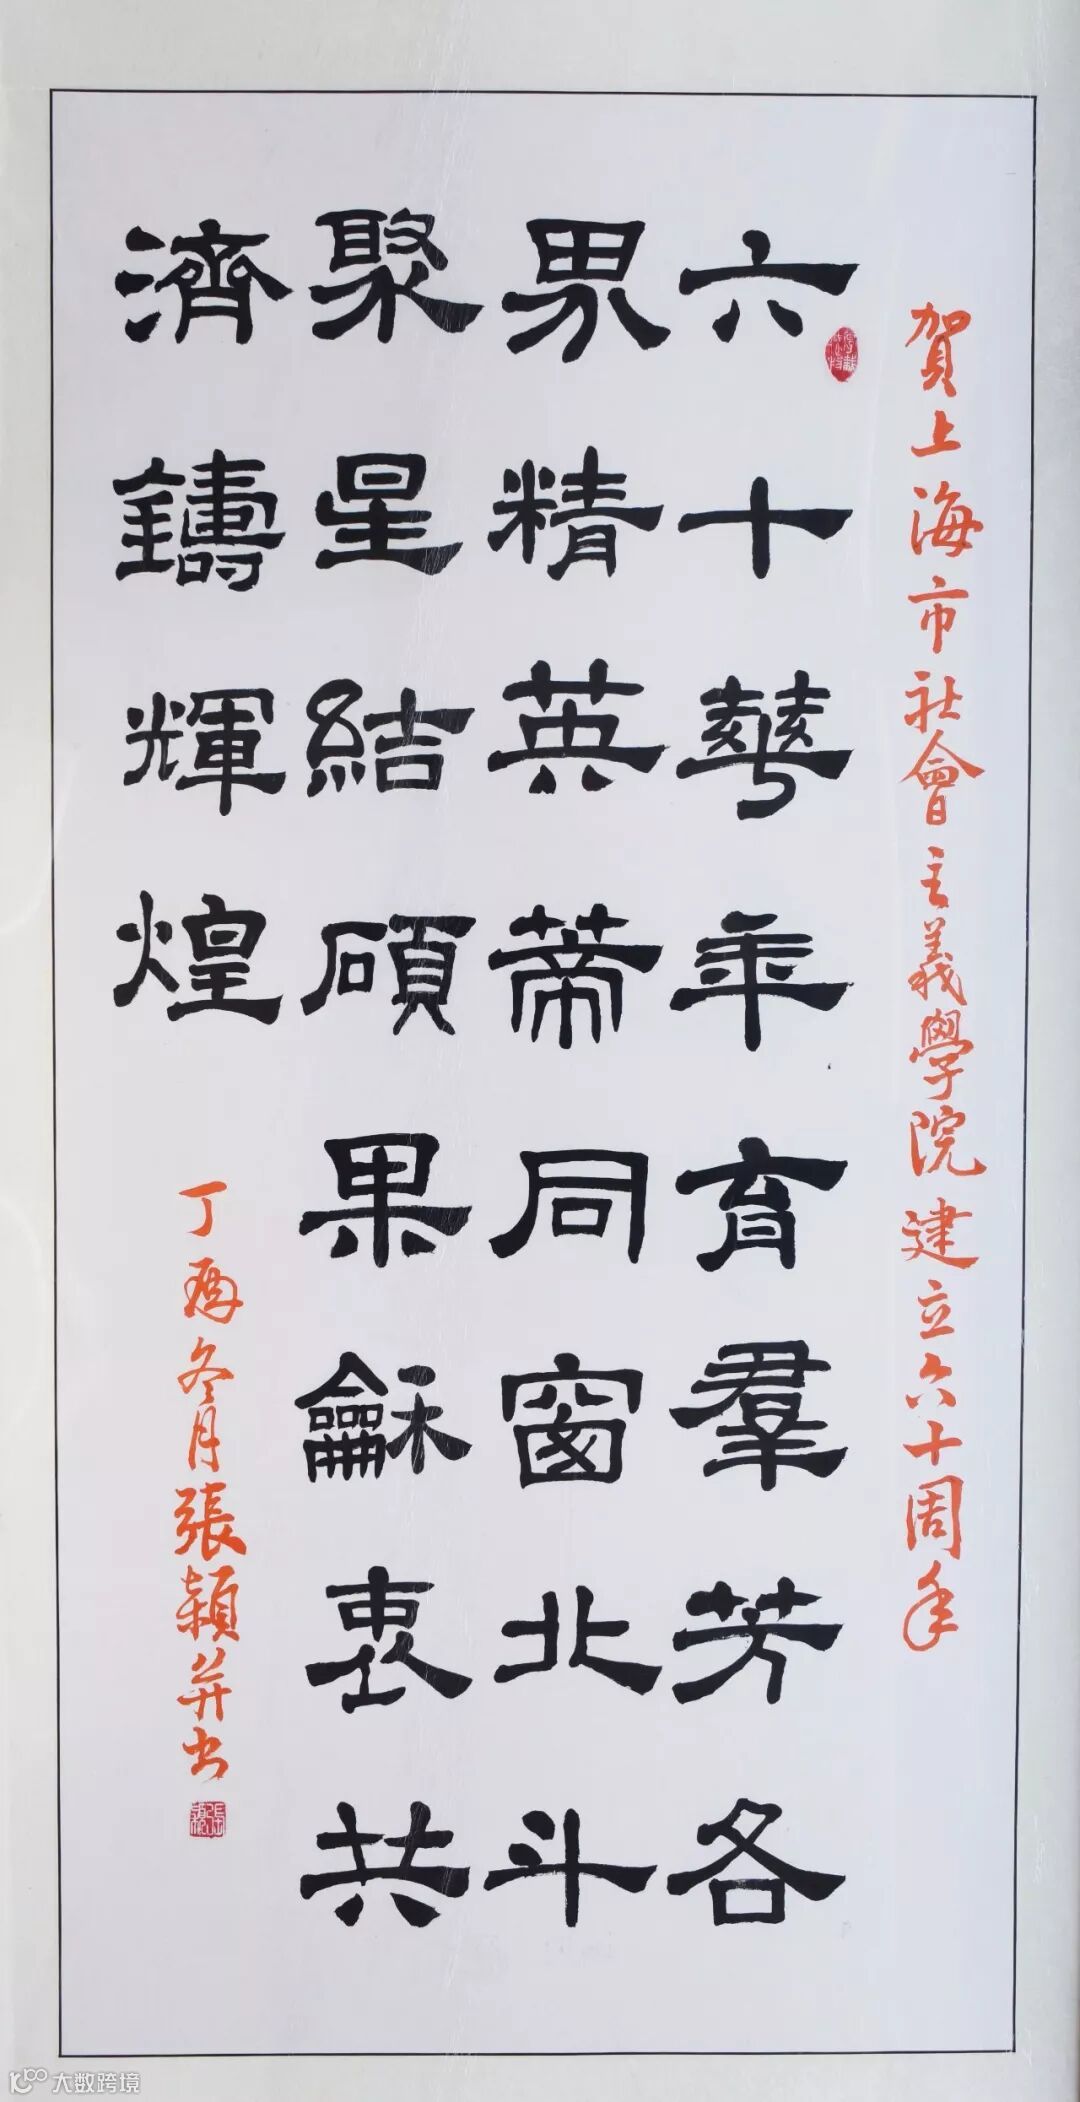 賀上海市社會主義學院建立六十周年
六十華年育羣芳各
界精英蒂同窗北斗
聚星結碩果龢衷共
濟鑄輝煌
丁酉冬月張穎并书
大数跨境